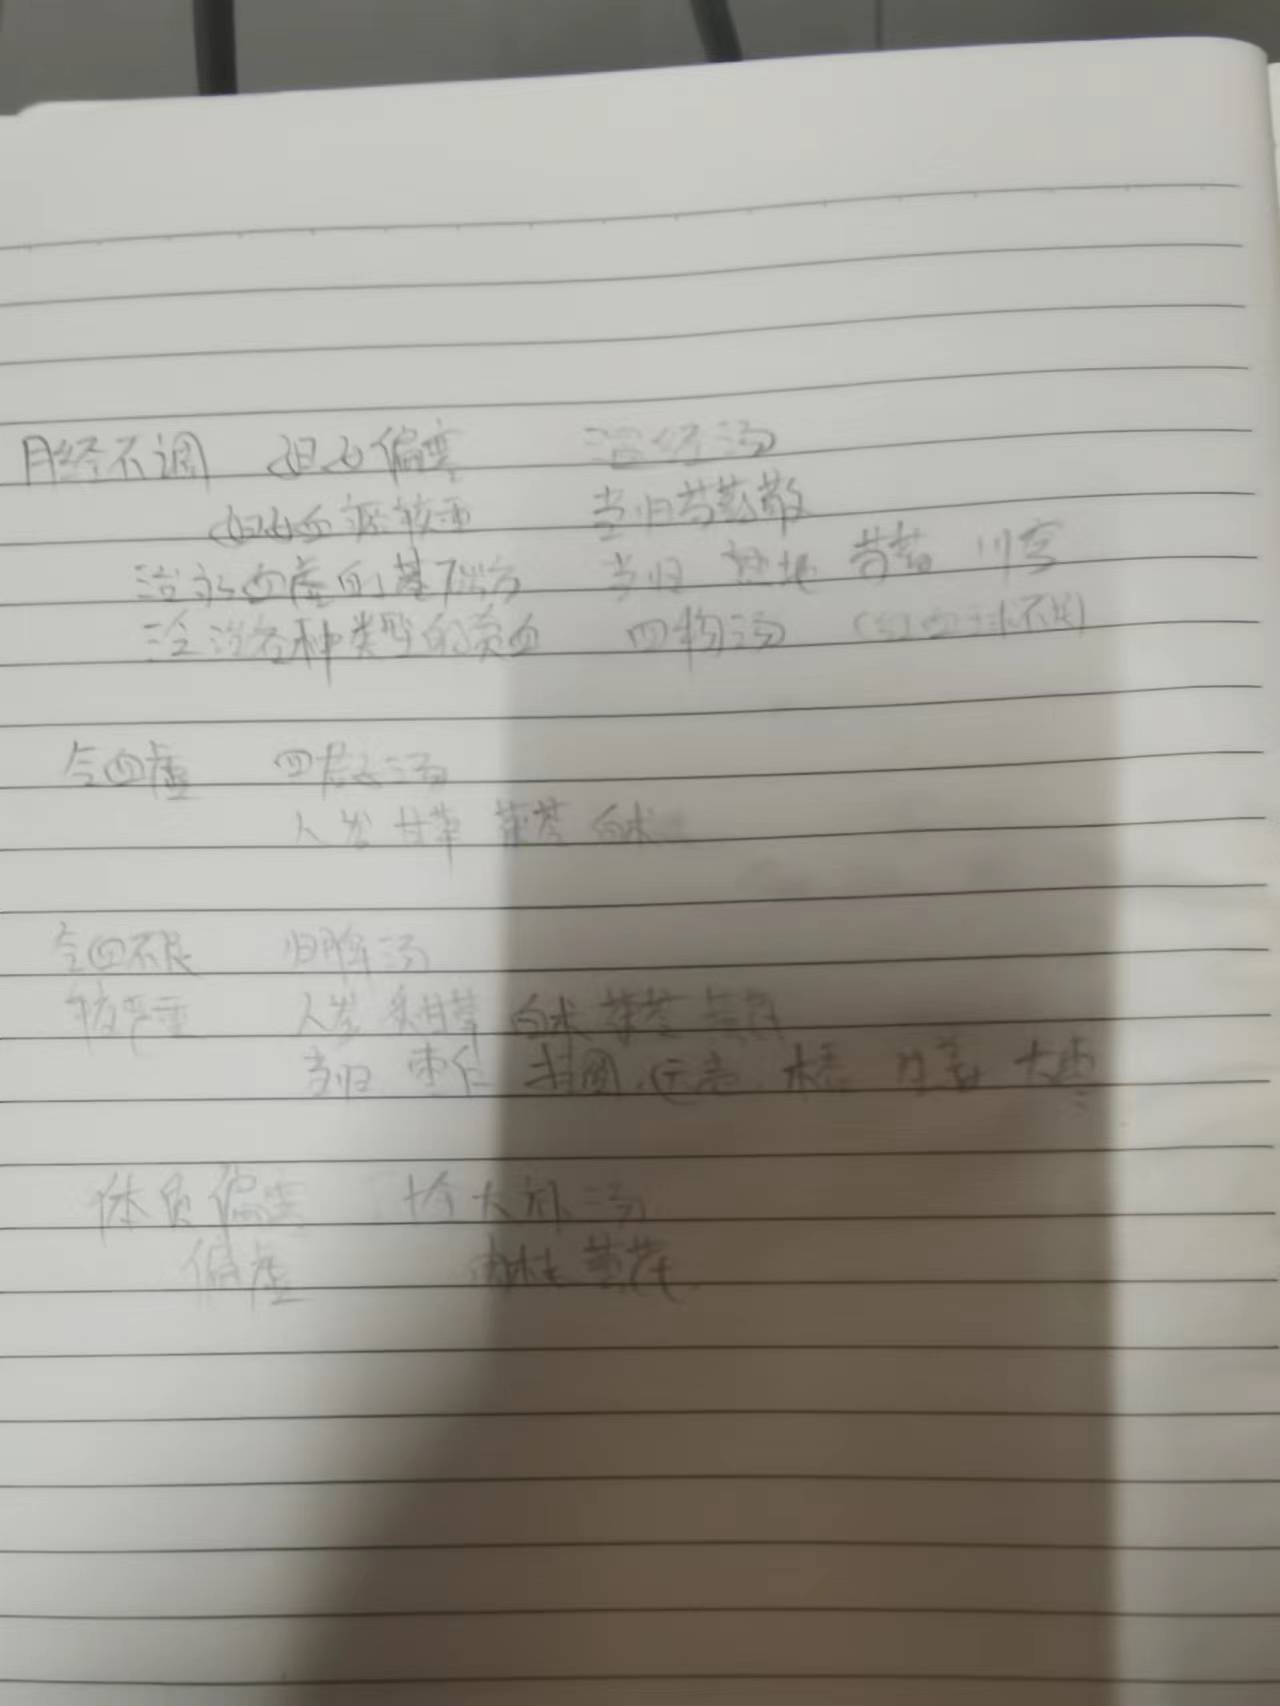 月经不调 偏寒 温经汤
血瘀较重 当归芍药散
治疗血虚的基础方 当归 熟地 芍药 川芎
治疗各种类型的贫血 四物汤 (红血球不足)
气血虚 四君子汤
人参 甘草 茯苓 白术
气血不足 归脾汤
较严重 人参 炙甘草 白术 茯苓
当归 枣仁 桂圆 远志 木香 生姜 大枣
体质偏寒 十全大补汤
偏虚 肉桂 黄芪